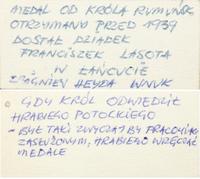 MEDAL OD KRÓLA RUMUŃSK.
OTRZYMANY PRZED 1939
DOSTAŁ DZIADEK
FRANCISZEK LASOTA
W ŁAŃCUCIE
ZBIGNIEW HEYDA WNUK
GDY KRÓL ODWIEDZIŁ
HRABIEGO POTOCKIEGO
- BYŁ TAKI ZWYCZAJ BY PRACOWNIKOM
ZASŁUŻONYM, HRABIEGO WRĘCZAĆ
MEDALE